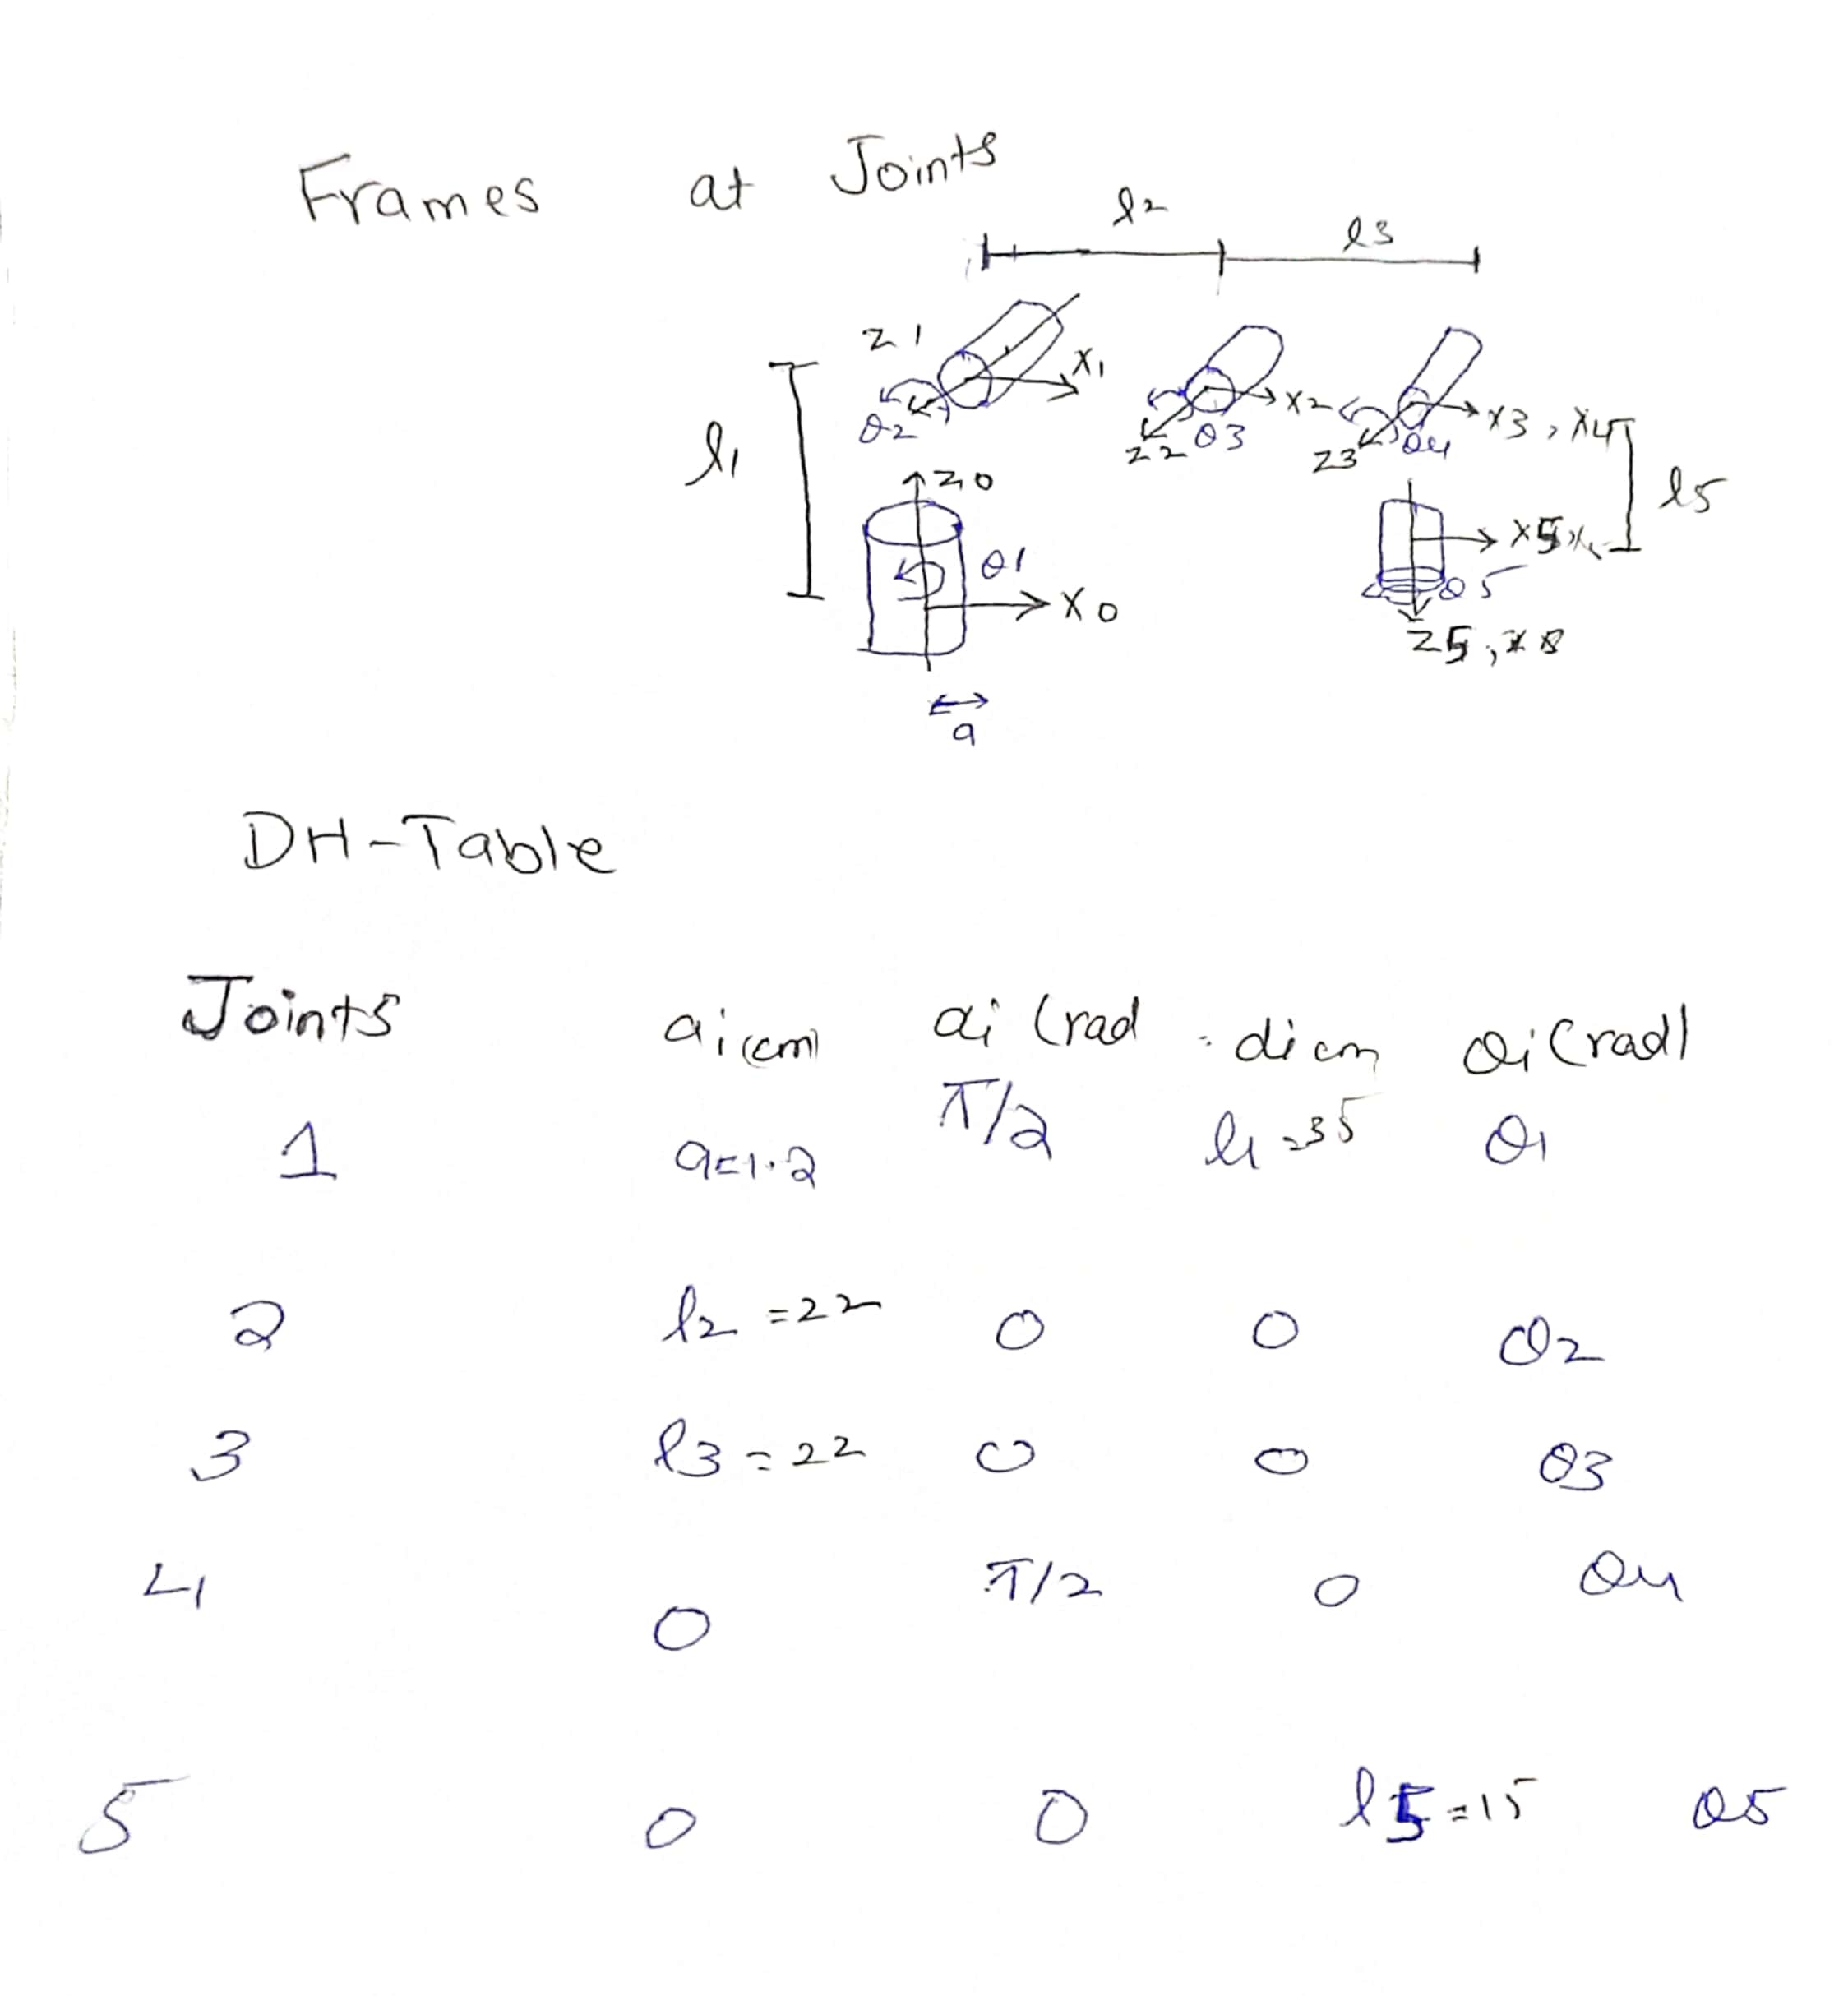 Frames at Joints
l2
l3
z1
x1
θ2
x2
z2 θ3
x3, x4
z3 θ4
l1
z0
l5
x5
θ1
x0
θ5
z5,
a
DH-Table
Joints ai(cm) αi (rad di cm θi(rad)
1 a=1.2 π/2 l1=35 θ1
2 l2=22 0 0 θ2
3 l3=22 0 0 θ3
4 0 π/2 0 θ4
5 0 0 l5=15 θ5